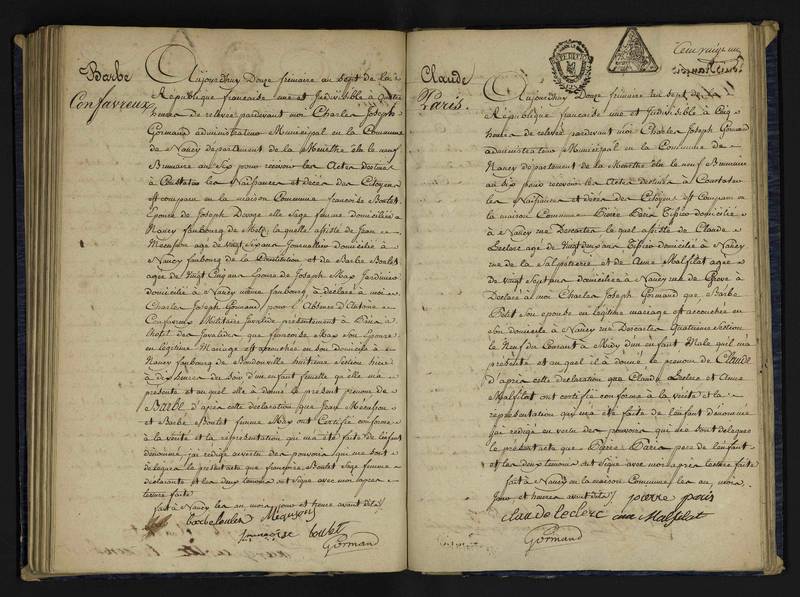 Barbe
Confavreux
Aujourdhuy Douze frimaire an Sept de la
République française une et Indivisible à quatre
heures de relevée pardevant moi Charles Joseph
Gormand administrateur Municipal en la Commune
de Nancy département de la Meurthe élu le neuf
Brumaire an Six pour recevoir les Actes destinés
à Constater les Naissances et Décès des Citoyens
est comparu en la maison Commune françoise Boulet
Epouse de Joseph sage femme domiciliée à
Nancy faubourg de Metz, la quelle assisté de Jean
agé de vingt Six ans Journallier domicilié à
Nancy faubourg de la Constitution et de Barbe Boulet
agée de Vingt Cinq ans Epouse de Joseph May Jardinier
domiciliée à Nancy même faubourg a déclaré à moi
Charles Joseph Gormand, pour l'Absence d'Antoine
Confavreux Militaire Invalide présentement à Paris à
hotel des Invalides que françoise May son Epouse
en légitime Mariage est accouchée en son domicile à
Nancy faubourg de huitième Section hier
à dix heures du soir d'un enfant femelle qu'elle m'a
présenté et auquel elle a donné le présent prénom de
Barbe d'après cette déclaration que Jean
et Barbe Boulet femme May ont Certifié conforme
à la vérité et la représentation qui m'a été faite de l'enfant
dénommé, j'ai rédigé en vertu des pouvoirs qui me sont
délégués le présent acte que françoise Boulet Sage femme
déclarante et les deux temoins ont Signé avec moi après
lecture faite
fait à Nancy les an, mois, jour et heure avant dits
barbe boulet
françoise boulet
Gormand
Claude
Paris.
Aujourdhuy Douze frimaire an Sept de la
République française une et Indivisible à Cinq
heures de relevée pardevant moi Charles Joseph Gormand
administrateur Municipal en la Commune de
Nancy département de la Meurthe élu le neuf Brumaire
an Six pour recevoir les Actes destinés à Constater
les Naissances et décès des Citoyens est Comparu en
la maison Commune Pierre Paris domicilié
à Nancy rue Descartes le quel assisté de Claude
Leclerc agé de Vingt deux ans domicilié à Nancy
rue de la Salpétrerie et de Anne Malfilat agée
de vingt Sept ans domiciliée à Nancy rue de Grève à
Déclaré à moi Charles Joseph Gormand que Barbe
Petit Son epouse en légitime mariage est accouchée en
son domicile à Nancy rue Descartes quatrieme Section
le Neuf du Courant à Midy d'un enfant Male qu'il m'a
présenté et au quel il a donné le prénom de Claude
d'après cette déclaration que Claude Leclerc et Anne
Malfilat ont certifié conforme à la vérité et la
représentation qui m'a été faite de l'enfant dénommé
j'ai rédigé en vertu des pouvoirs qui me sont délégués
le présent acte que Pierre Paris pere de l'enfant
et les deux temoins ont Signé avec moi après lecture faite
fait à Nancy en la maison Commune les an, mois,
Jour et heures avant dits
pierre paris
Claude leclerc
anne Malfilat
Gormand